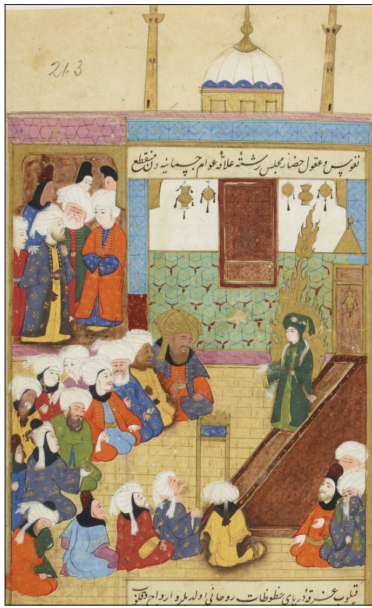 263
نفوس وعقول حضار مجلس رشتهٔ علاقهٔ عوالم جسمانیه دن منقطع
قیلوب غرقهٔ دریای حظوظات روحانی اولدیلر و ارواح و قلوب